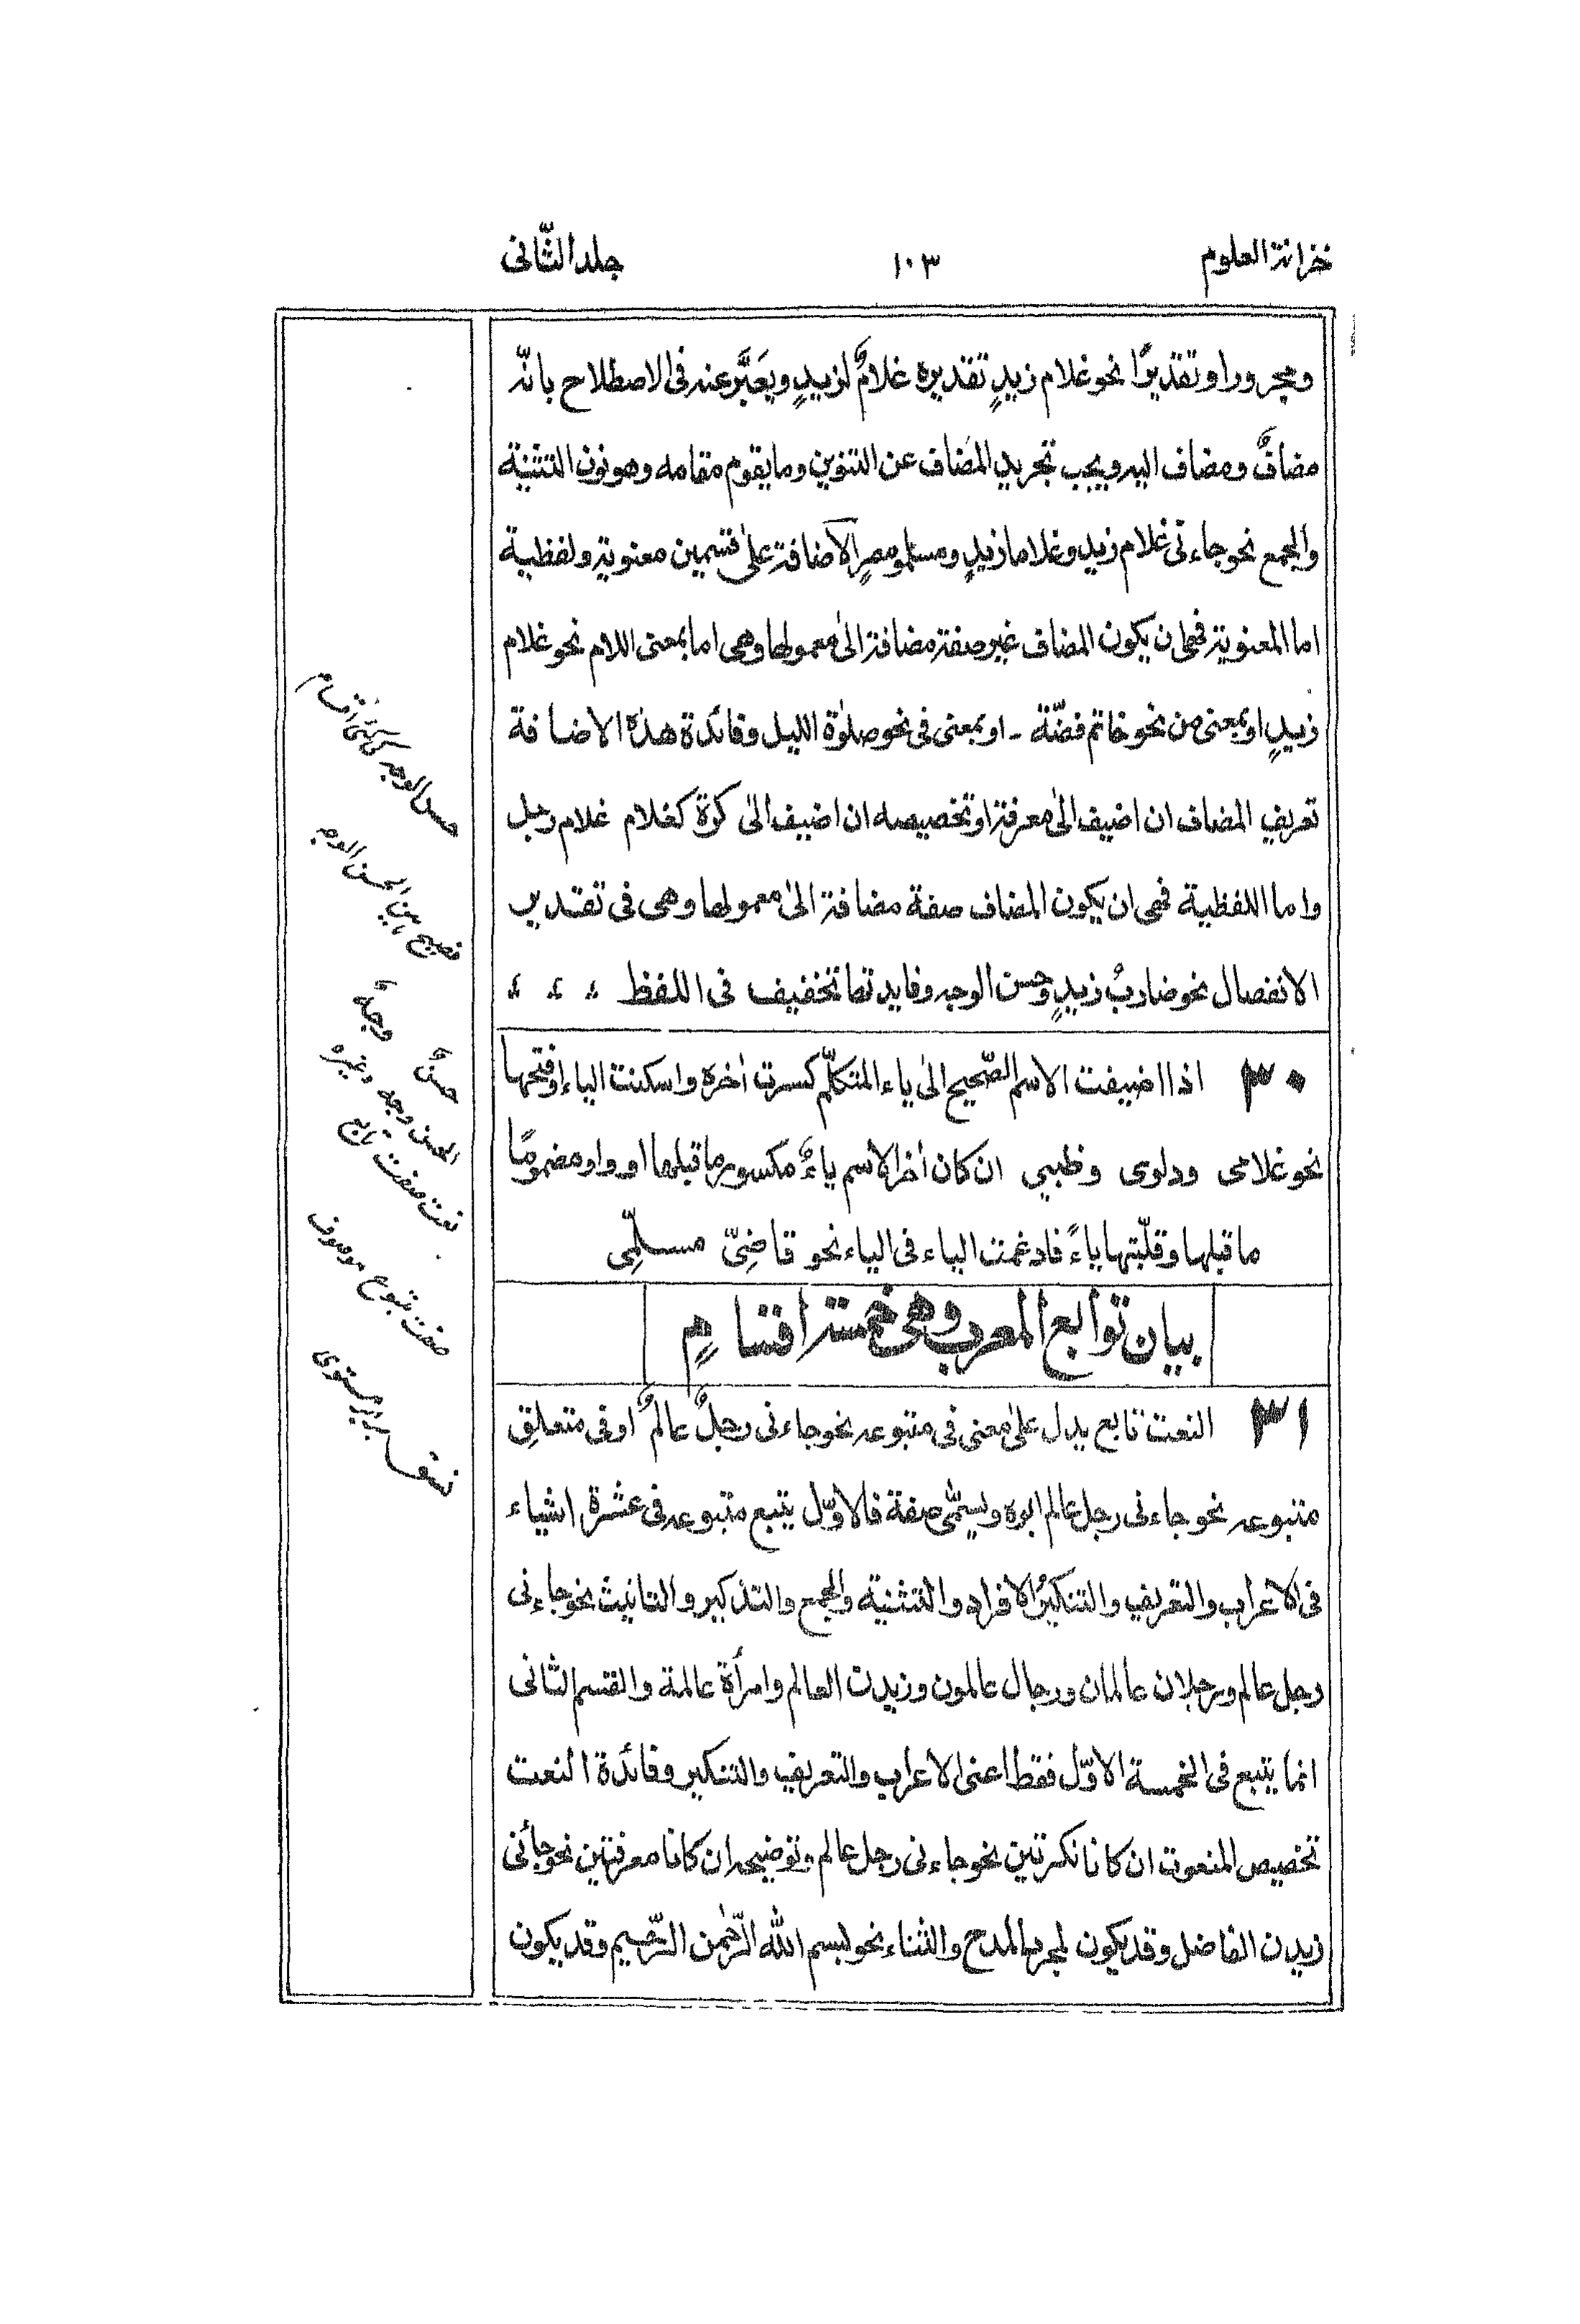 خزانة العلوم
١٠٣
جلد الثّانی
ومجرورا و تقدیرًا نحو غلام زیدٍ تقدیره غلامٌ لزیدٍ ویعبَّر عنه فی الاصطلاح بانّه
مضافٌ ومضاف الیه ویجب تجرید المضاف عن التنوین وما یقوم مقامه وهو نون التثنیة
والجمع نحو جاءنی غلام زید وغلاما زیدٍ ومسلمو مصرٍ الاضافة علیٰ قسمین معنویة ولفظیة
اما المعنویة فهی ان یکون المضاف غیر صفة مضافة الیٰ معمولها وهی اما بمعنی اللام نحو غلام
زیدٍ او بمعنی من نحو خاتم فضّة ـ او بمعنی فی نحو صلوٰة اللیل وفائدة هذه الاضافة
تعریف المضاف ان اضیف الیٰ معرفة او تخصیصه ان اضیف الیٰ کرة کغلام غلام رجل
واما اللفظیة فهی ان یکون المضاف صفة مضافة الیٰ معمولها وهی فی تقدیر
الانفصال نحو ضاربُ زیدٍ وحسن الوجه وفایدتها تخفیف فی اللفظ
٣٠ اذا اضیفت الاسم الصّحیح الیٰ یاء المتکلّم کسرت اٰخره واسکنت الیاء او فتحها
نحو غلامی ودلوی وظبیی ان کان اٰخر الاسم یاءٌ مکسور ما قبلها او واو مضمومًا
ما قبلها وقلّبتها یاءً فادغمت الیاء فی الیاء نحو قاضِیّ مسلمِی
بیان توابع المعرب وهی خمسة اقسامٍ
٣١ النعت تابع یدل علیٰ معنی فی متبوعه نحو جاءنی رجلٌ عالمٌ او فی متعلقِ
متبوعه نحو جاءنی رجل عالم ابوه ویسمّی صفة فالاوّل یتبع متبوعه فی عشرة اشیاء
فی الاعراب والتعریف والتنکیر الافراد والتثنیة والجمع والتذکیر والتانیث نحو جاءنی
رجل عالم ورجلان عالمان ورجال عالمون وزیدن العالم وامرأة عالمة والقسم الثانی
انما یتبع فی الخمسة الاوّل فقط اعنی الاعراب والتعریف والتنکیر وفائدة النعت
تخصیص المنعوت ان کانا نکرتین نحو جاءنی رجل عالم وتوضیحه ان کانا معرفتین نحو جأنی
زیدن الفاضل وقد یکون لمجرد المدح والثناء نحو بسم الله الرّحمٰن الرّحیم وقد یکون
حسن الوجه
الحسن الوجه
حسنٌ وجهٌ
الحسن وجه وغیره
نعت صفت تابع
صفت متبوع موصوف